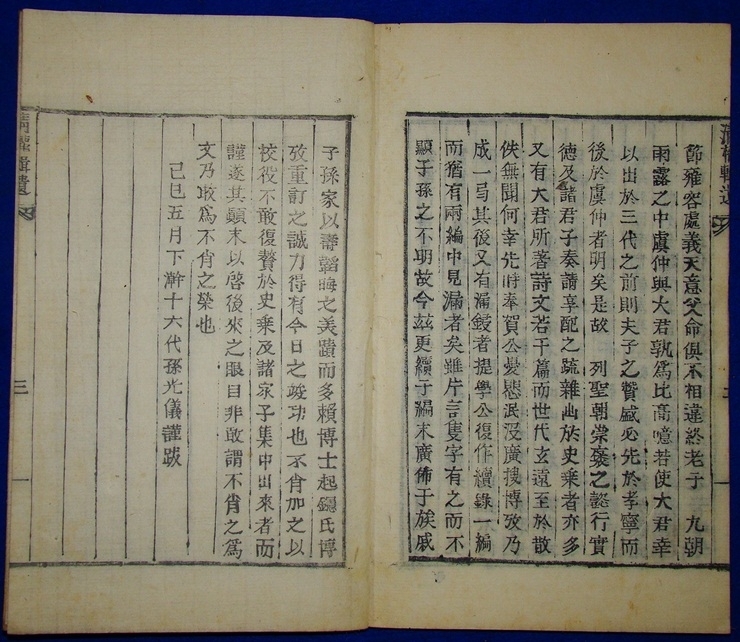 節雍容處義天意父命俱不相違終老于 九朝
雨露之中虞仲與大君孰爲比高噫若使大君幸
以出於三代之前則夫子之贊感必先於孝寧而
後於虞仲者明矣是故 列聖朝崇褒之懿行實
德及諸君子奏請享配之疏雜出於史乘者亦多
又有大君所著詩文若干篇而世代玄遠至於散
佚無聞何幸先時奉賀公憂愍泯沒廣搜博攷乃
成一弓其後又有漏錄者提學公復作續錄一編
而猶有兩編中見漏者矣雖片言隻字有之而不
顯子孫之不明故今玆更續于編末廣佈于族戚
子孫家以壽韜晦之美蹟而多賴博士起鏞氏博
攷重訂之誠力得有今日之竣功也不肖加之以
校役不敢復贅於史乘及諸家子集中出來者而
謹遂其顚末以啓後來之眼目非敢謂不肖之爲
文乃敢爲不肖之榮也
己巳五月下澣十六代孫光儀謹跋
輯遺
三
一